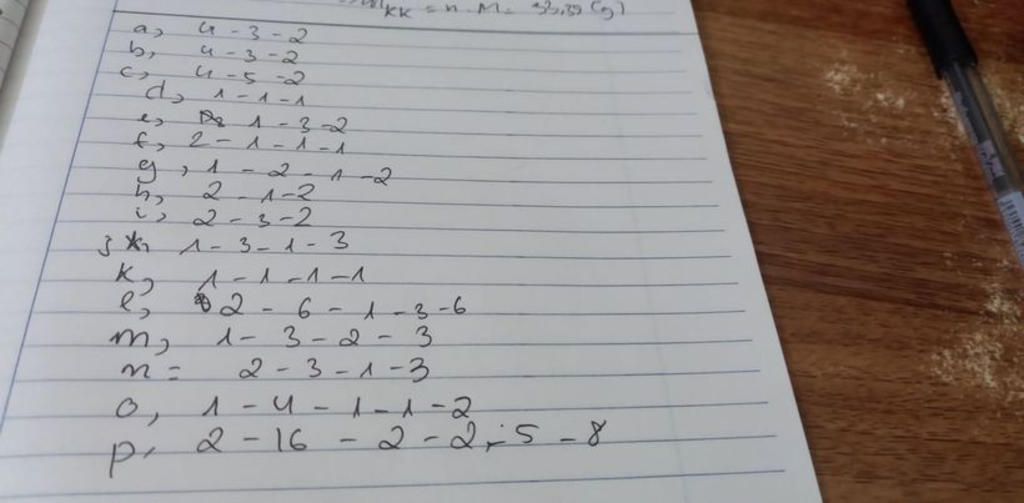 KK = n. M =
a, 4 - 3 - 2
b, 4 - 3 - 2
c, 4 - 5 - 2
d, 1 - 1 - 1
e, 1 - 3 - 2
f, 2 - 1 - 1 - 1
g, 1 - 2 - 1 - 2
h, 2 - 1 - 2
i, 2 - 3 - 2
j 1 - 3 - 1 - 3
k, 1 - 1 - 1 - 1
l, 2 - 6 - 1 - 3 - 6
m, 1 - 3 - 2 - 3
n = 2 - 3 - 1 - 3
o, 1 - 4 - 1 - 1 - 2
p, 2 - 16 - 2 - 2 - 5 - 8